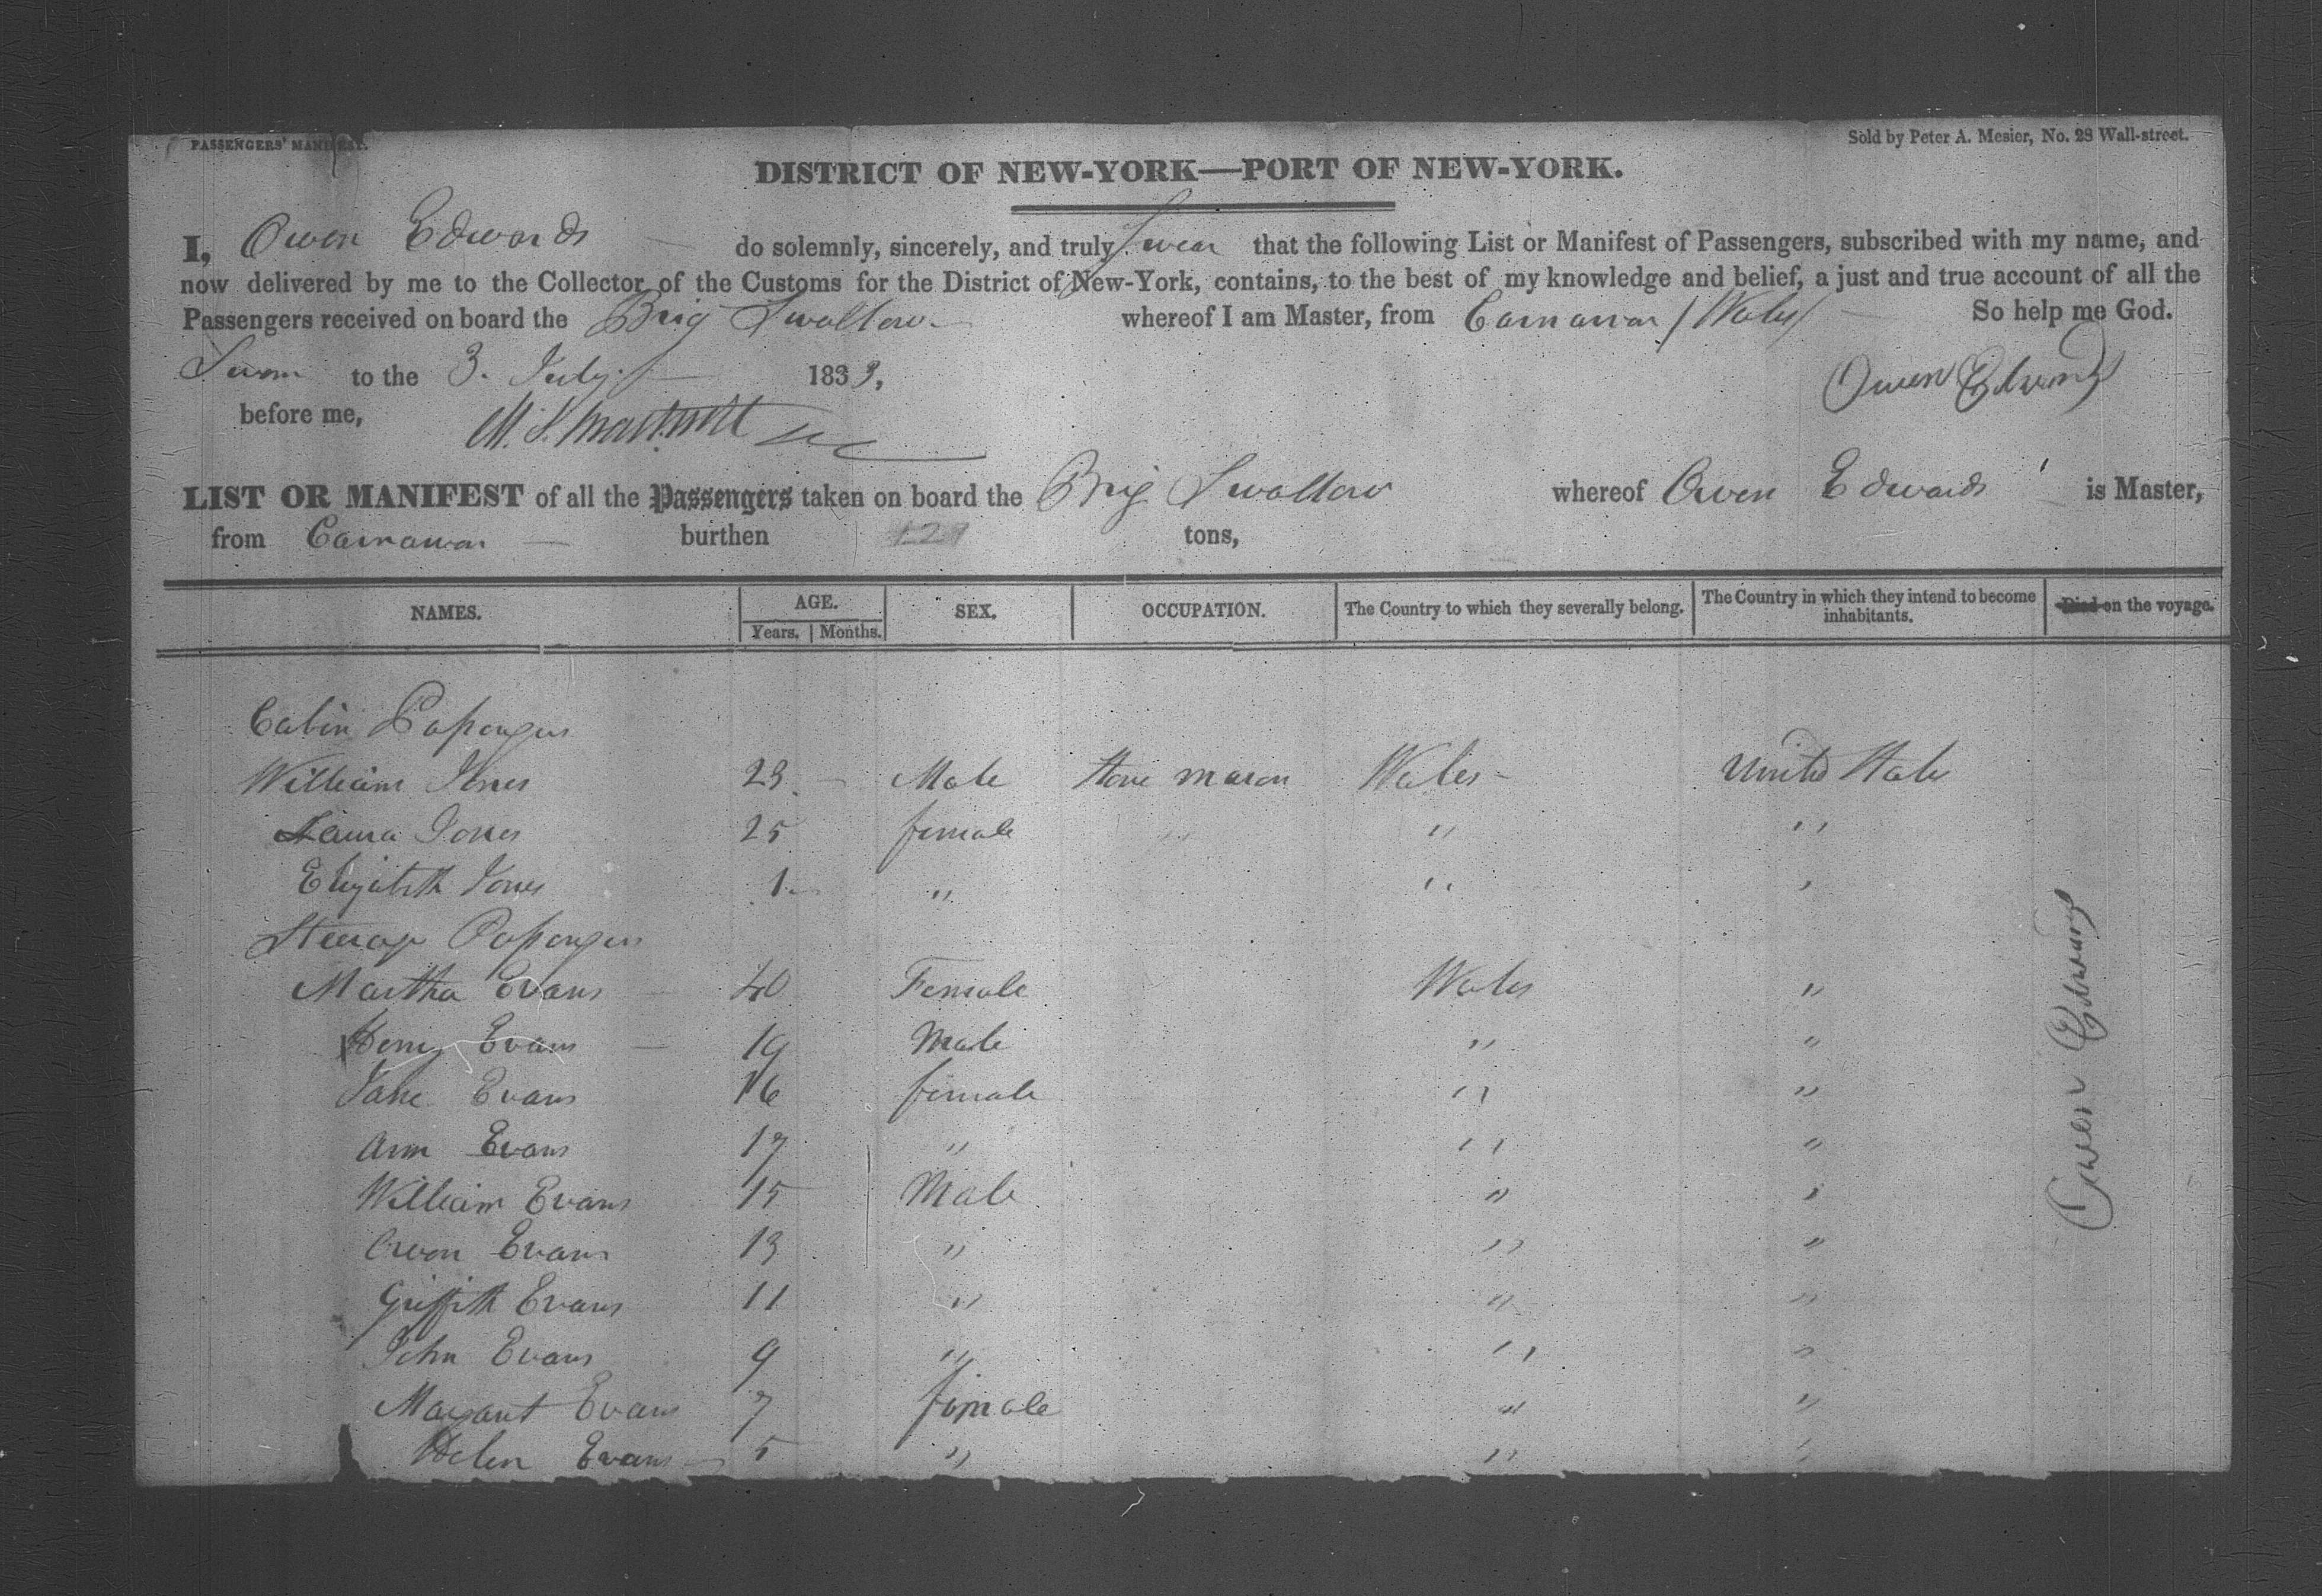 PASSENGERS' MANIFEST.
Sold by Peter A. Mesier, No. 28 Wall-street.
DISTRICT OF NEW-YORK—PORT OF NEW-YORK.
I, Owen Edwards do solemnly, sincerely, and truly Swear that the following List or Manifest of Passengers, subscribed with my name, and
now delivered by me to the Collector of the Customs for the District of New-York, contains, to the best of my knowledge and belief, a just and true account of all the
Passengers received on board the Brig Swallow whereof I am Master, from Carnarvon / Wales / So help me God.
Sworn to the 3. July 1833,
Owen Edwards
before me,
LIST OR MANIFEST of all the Passengers taken on board the Brig Swallow whereof Owen Edwards is Master,
from Carnarvon burthen 129 tons,
NAMES. AGE. Years. Months. SEX. OCCUPATION. The Country to which they severally belong. The Country in which they intend to become inhabitants. Died on the voyage.
Cabin Passengers
William Jones 23 Male Stone mason Wales United States
Laura Jones 25 female " " "
Elizabeth Jones 1 " " "
Steerage Passengers
Martha Evans 40 Female Wales "
Henry Evans 19 Male " "
Jane Evans 16 female " "
Ann Evans 17 " " "
William Evans 15 Male " "
Owen Evans 13 " " "
Griffith Evans 11 " " "
John Evans 9 " " "
Margaret Evans 7 female " "
Helen Evans 5 " " "
Owen Edwards